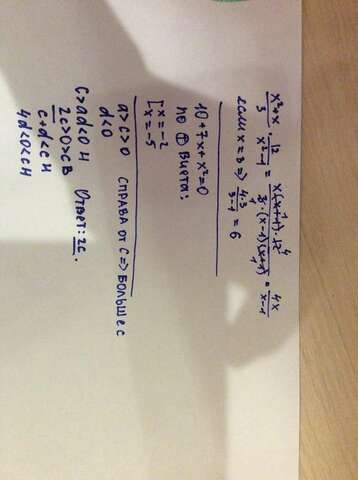 x²+x/3 · 12/x²-1 = x(x+1)·12⁴/3·(x-1)(x+1) = 4x/x-1
если x=3 => 4·3/3-1 = 6
10+7x+x²=0
по ⊕ Виета:
[x=-2
x=-5
a>c>0 СПРАВА ОТ С => БОЛЬШЕ С
d<0
c>ad<0 Н
2c>0>c В Ответ: 2c.
c+d<c Н
4d<0<c Н